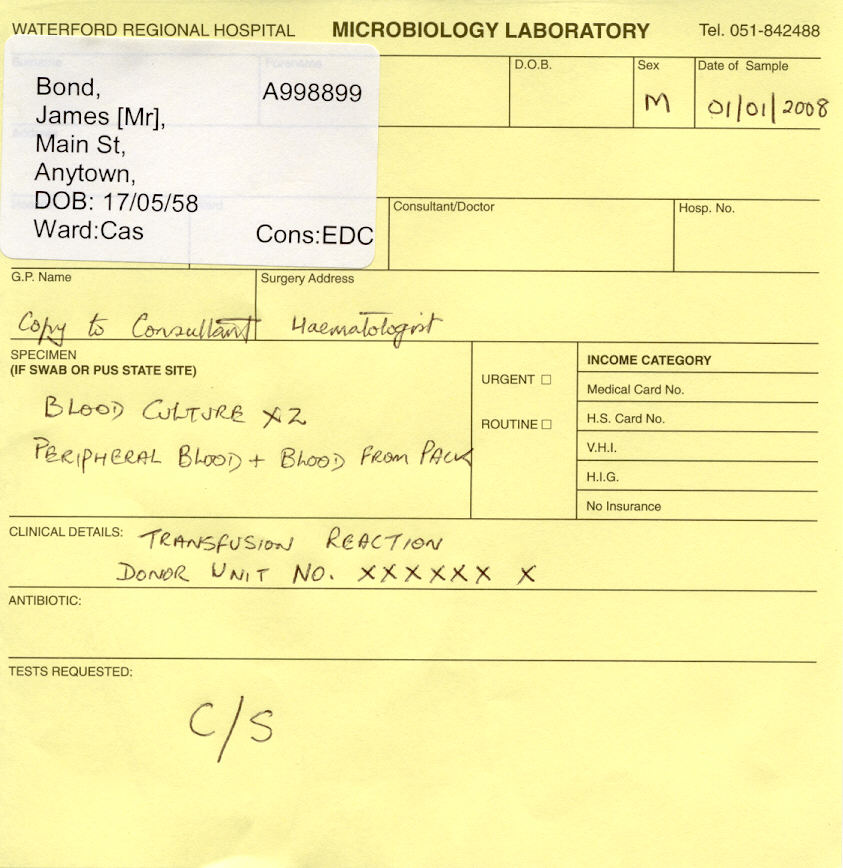 WATERFORD REGIONAL HOSPITAL MICROBIOLOGY LABORATORY Tel. 051-842488
Surname Forename D.O.B. Sex Date of Sample
Bond, A998899
James [Mr],
M 01/01/2008
Main St,
Anytown,
DOB: 17/05/58
Ward:Cas Cons:EDC
Consultant/Doctor Hosp. No.
G.P. Name Surgery Address
Copy to Consultant Haematologist
SPECIMEN
(IF SWAB OR PUS STATE SITE)
BLOOD CULTURE X2
PERIPHERAL BLOOD + BLOOD FROM PACK
URGENT ☐
ROUTINE ☐
INCOME CATEGORY
Medical Card No.
H.S. Card No.
V.H.I.
H.I.G.
No Insurance
CLINICAL DETAILS: TRANSFUSION REACTION
DONOR UNIT NO. XXXXXX X
ANTIBIOTIC:
TESTS REQUESTED:
C/S